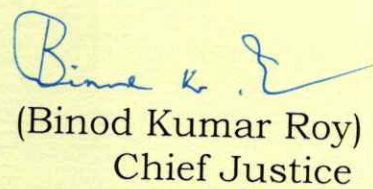 Binod Kr. 
(Binod Kumar Roy)
Chief Justice